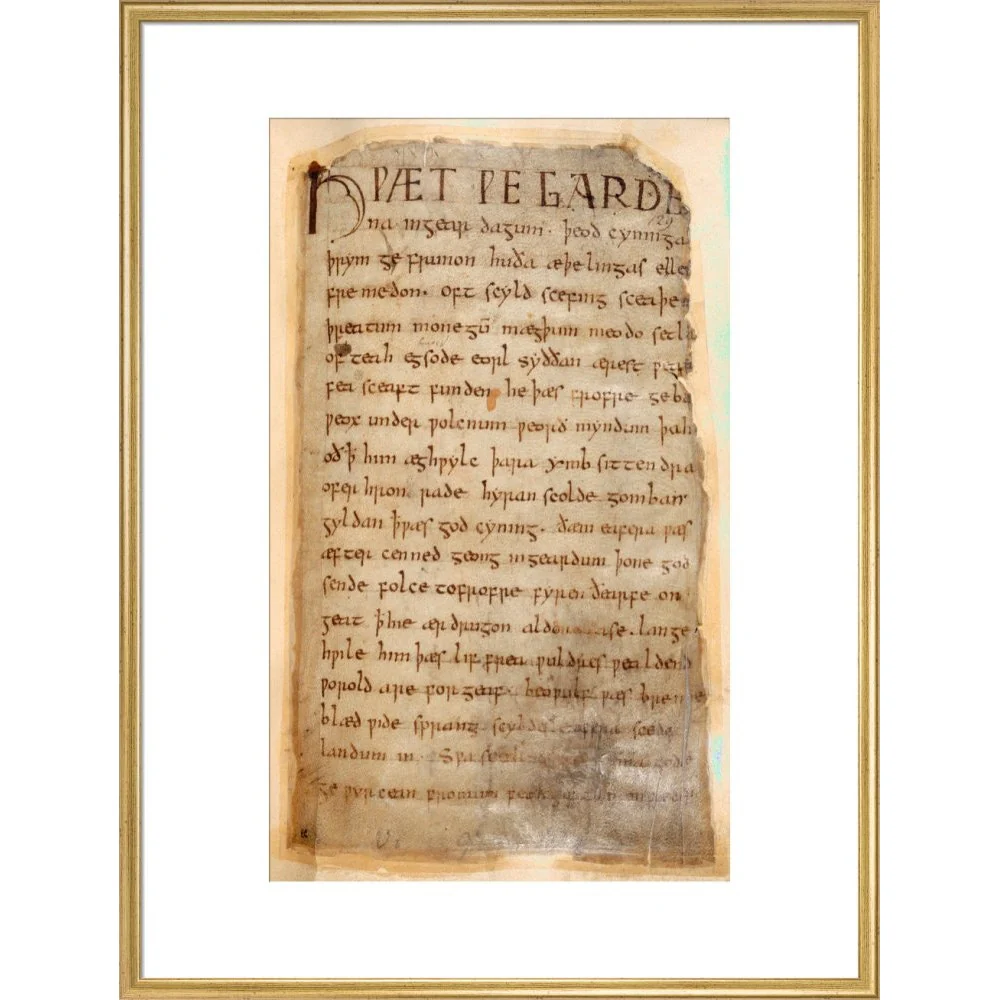 HǷÆT ǷE GARDE
129
na ingear dagum. þeod cyninga
þrym ge frunon huða æþelingas elle
fre medon. oft scyld scefing sceaþe
þreatum monegū mægþum meodo setla
of teah egsode eorl syððan ærest ƿea
fea sceaft funden he þæs frofre geba
ƿeox under ƿolcnum ƿeorð myndum þah
oð ꝥ him æghƿylc þara ymb sittendra
ofer hron rade hyran scolde gomban
gyldan ꝥ ƿæs god cyning. ðæm eafera ƿæs
æfter cenned geong ingeardum þone god
sende folce tofrofre fyren ðearfe on
geat ꝥ hie ær drugon aldor ase. lange
hƿile him þæs lif frea ƿuldres ƿealdend
ƿorold are for geaf. beoƿulf ƿæs breme
blæd ƿide sprang scyldes eafera scede
landum in. Sƿa god e
ge ƿyrcean fromum feoh